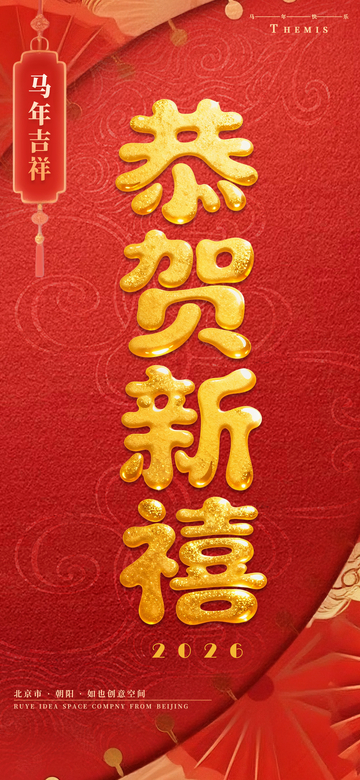 马年快乐
THEMIS
马年吉祥
恭贺新禧
2026
北京市·朝阳·如也创意空间
RUYE IDEA SPACE COMPNY FROM BEIJING